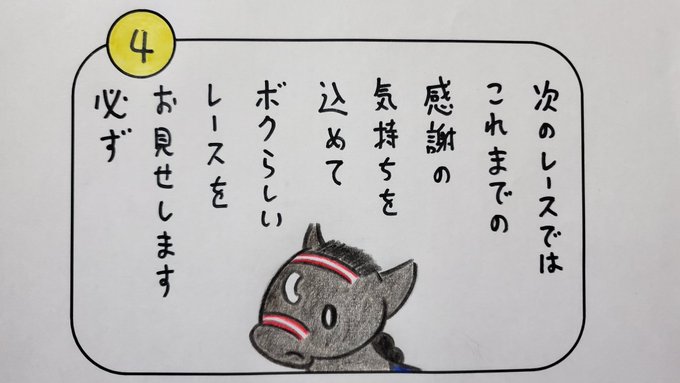 4
次のレースでは
これまでの
感謝の
気持ちを
込めて
ボクらしい
レースを
お見せします
必ず